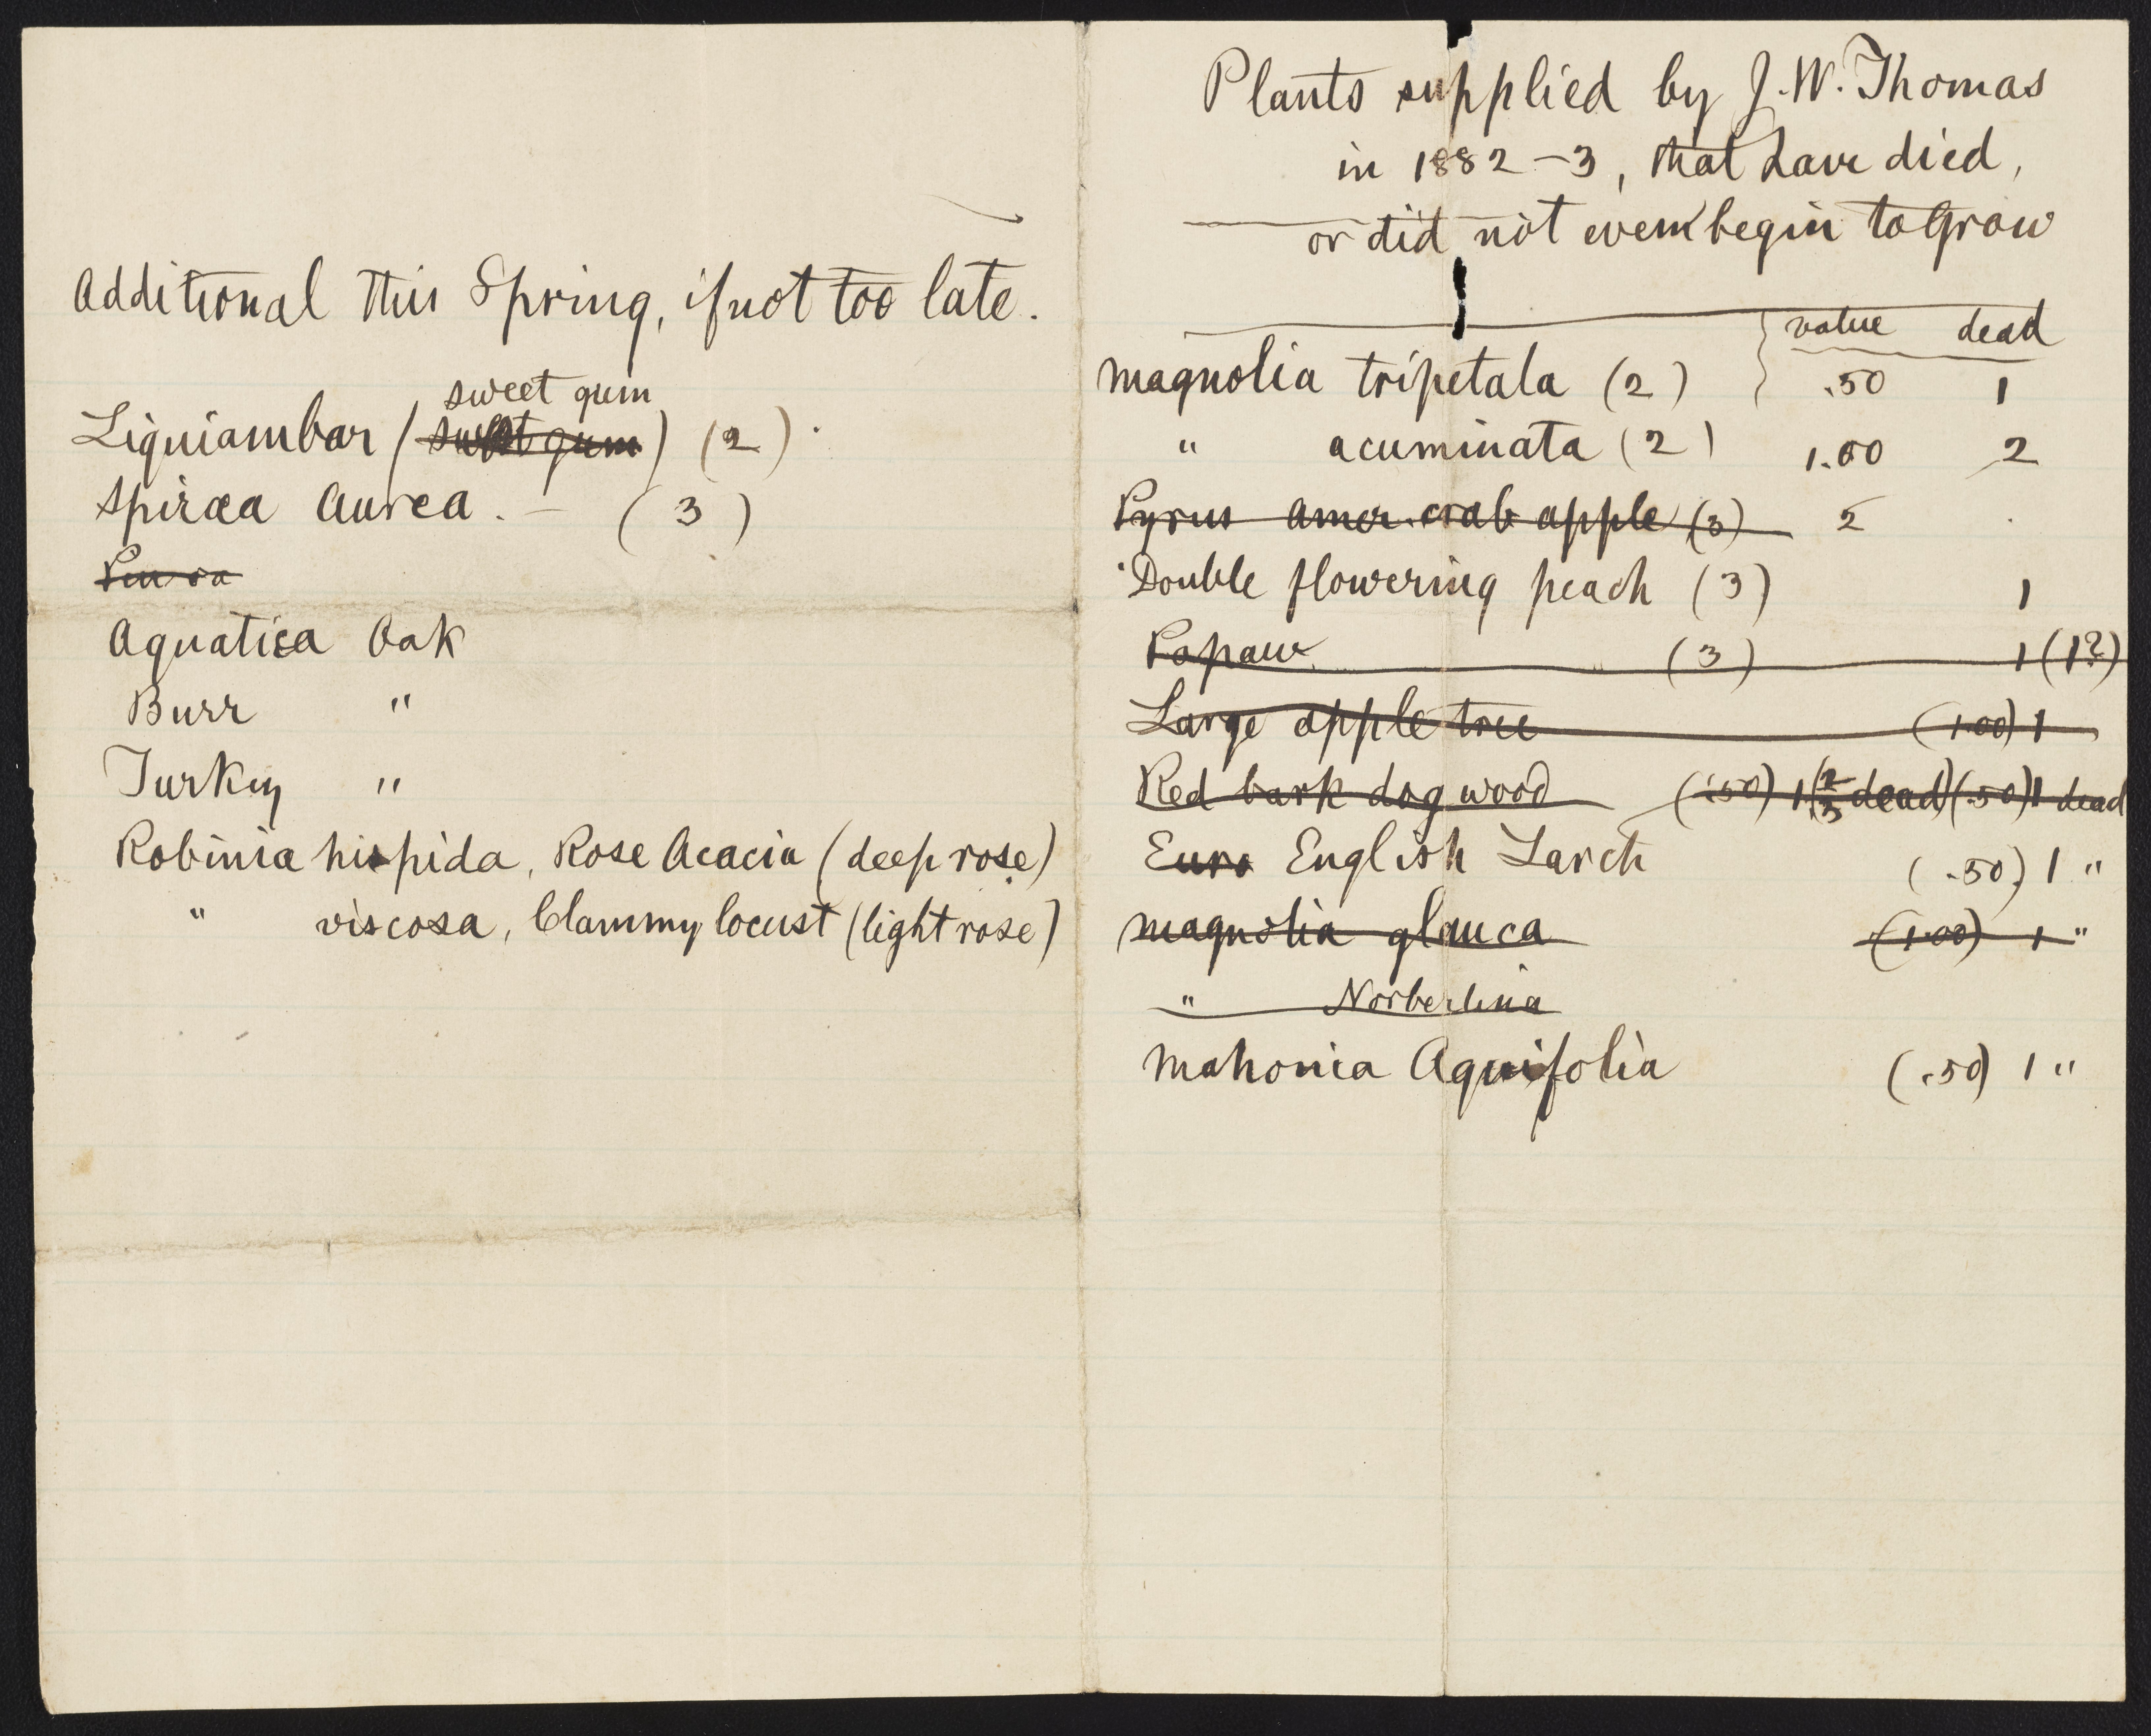 Additional this Spring, if not too late.
sweet gum
Liquiambar (sweet gum) (2).
Spiræa Aurea. – (3)
Aquatica Oak
Burr "
Turkey "
Robinia hispida, Rose Acacia (deep rose)
" viscosa, Clammy locust (light rose)
Plants supplied by J. W. Thomas
in 1882-3, that have died,
or did not even begin to Grow
value dead
Magnolia tripetala (2) .50 1
" acuminata (2) 1.00 2
Pyrus Amer. crab apple (3) 2
Double flowering peach (3) 1
Papaw (3) 1 (1?)
Large apple tree (1.00) 1
Red bark dogwood (.50) 1 (2/3 dead) (.50) 1 dead
Euro English Larch (.50) 1 "
Magnolia glauca (1.00) 1 "
" Norbertina
Mahonia Aquifolia (.50) 1 "